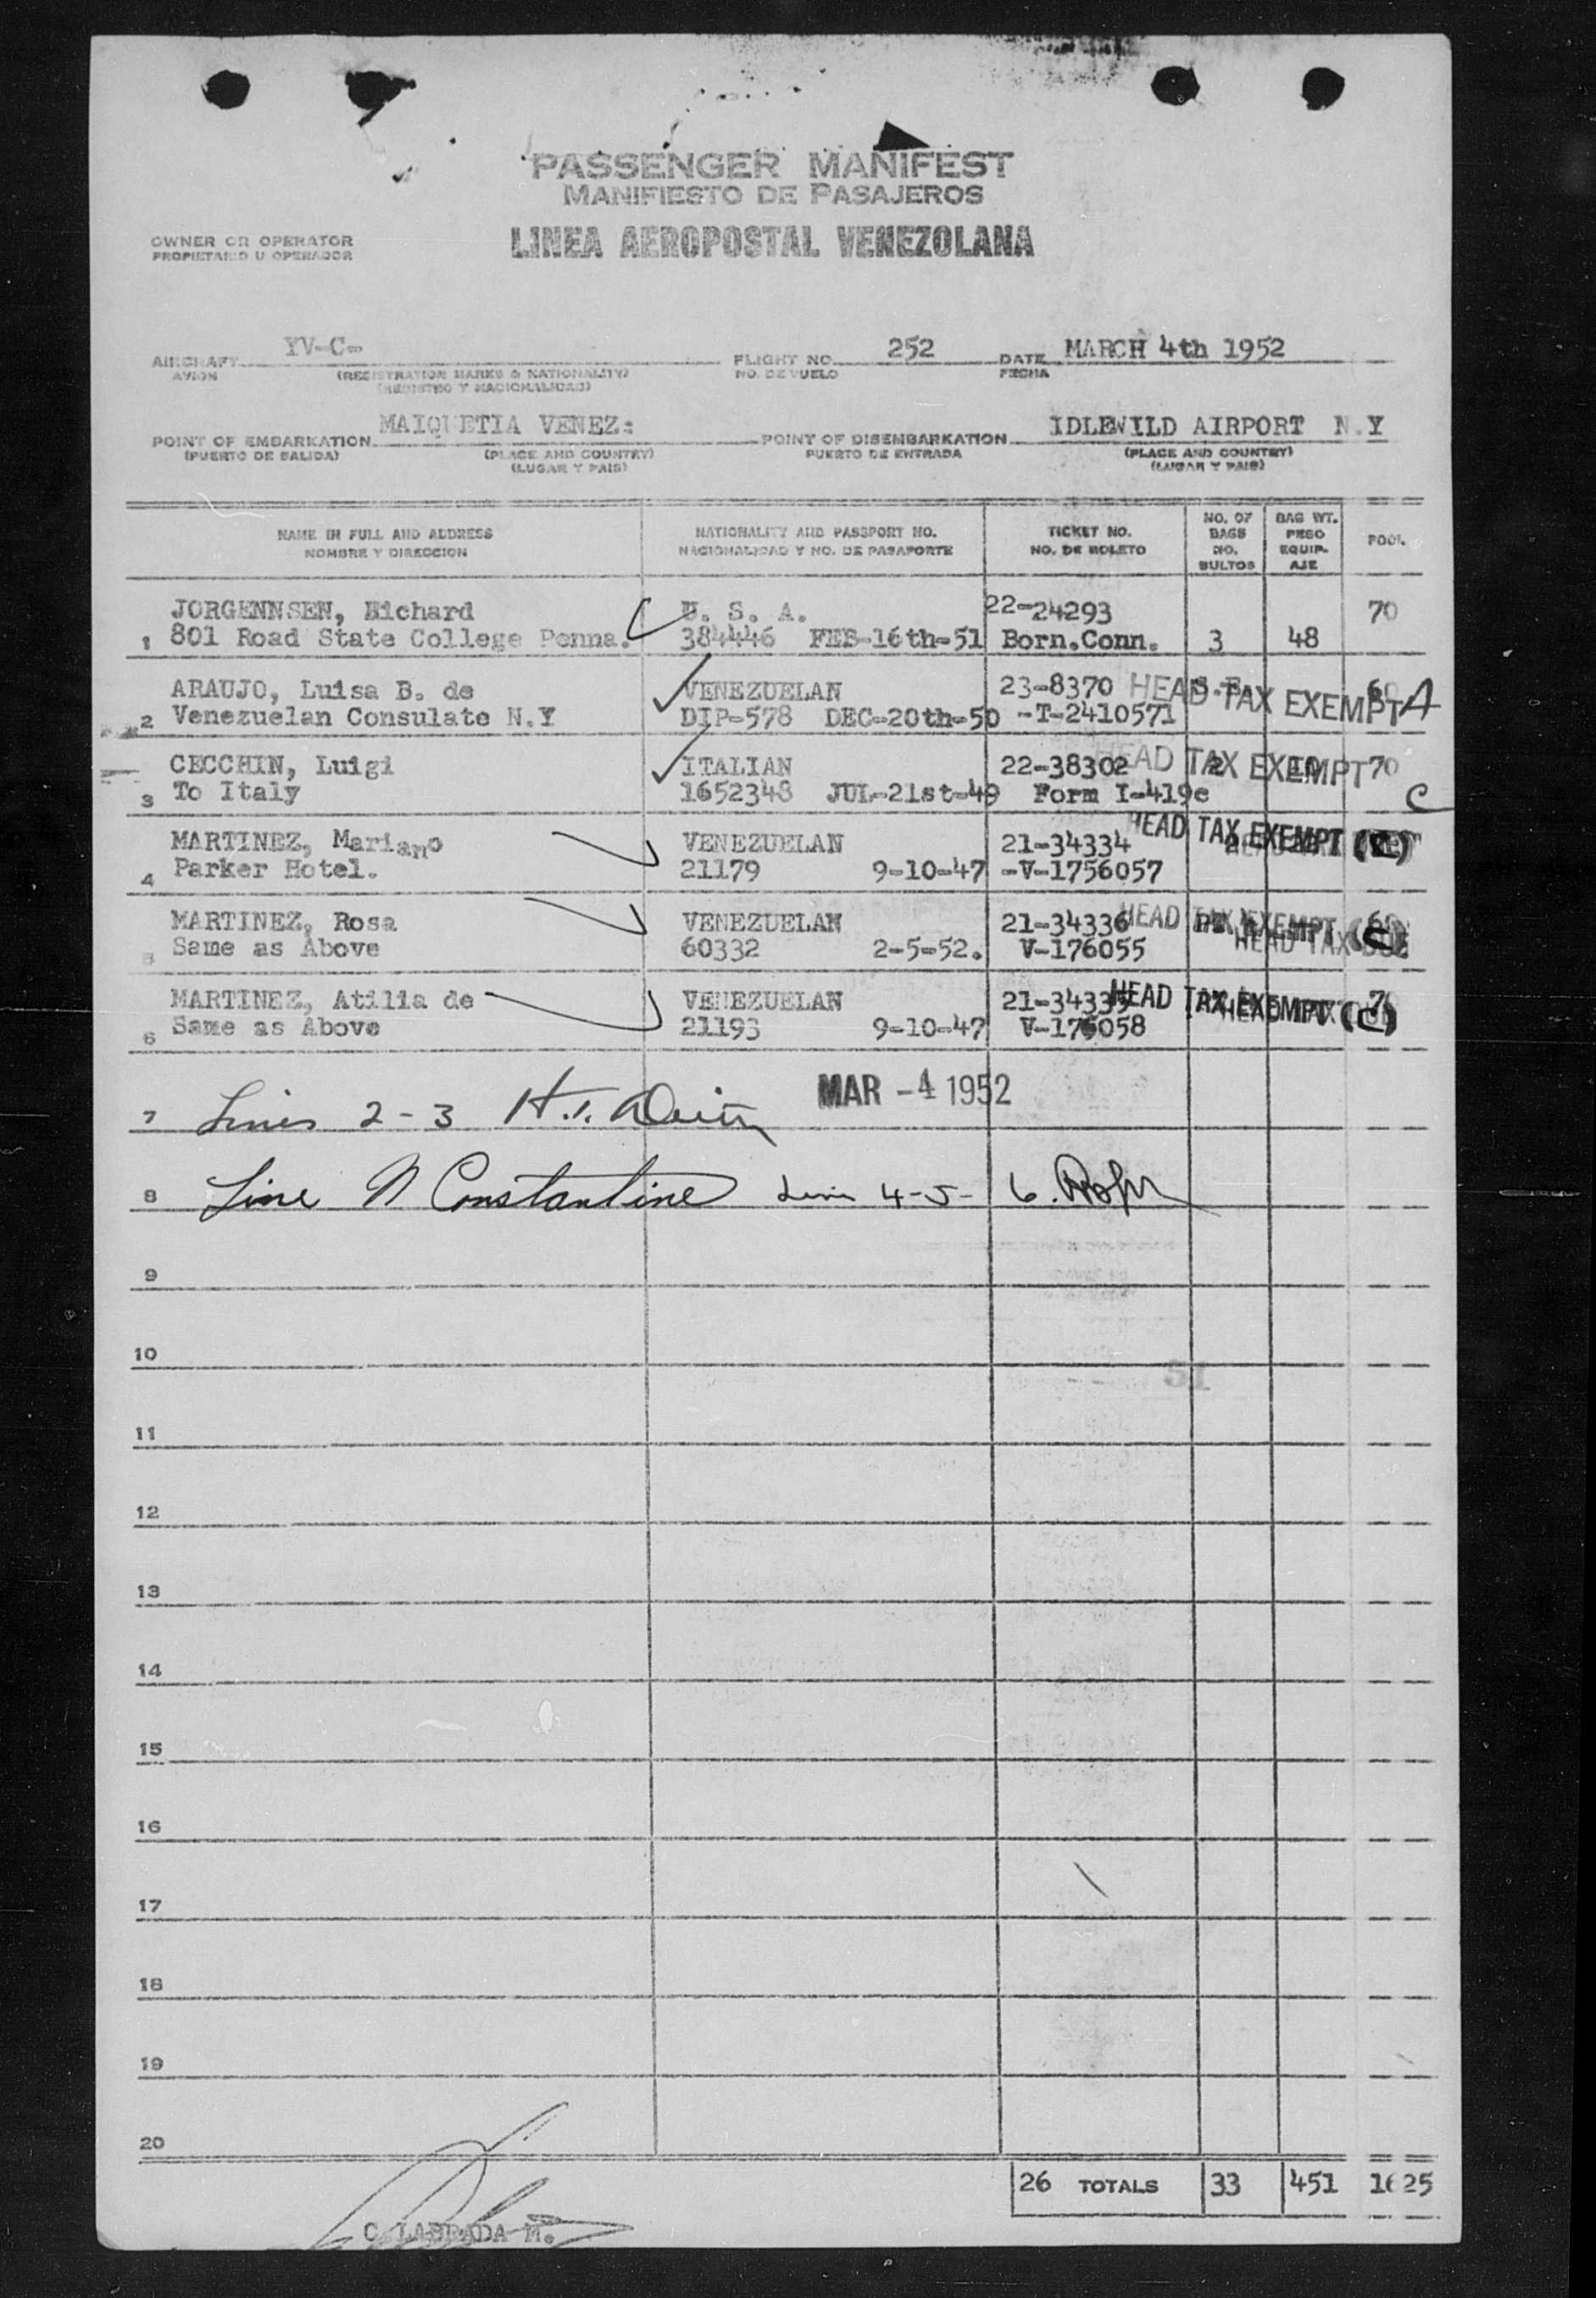 PASSENGER MANIFEST
MANIFIESTO DE PASAJEROS
OWNER OR OPERATOR
PROPIETARIO U OPERADOR
LINEA AEROPOSTAL VENEZOLANA
AIRCRAFT YV-C- FLIGHT NO. 252 DATE MARCH 4th 1952
AVION (REGISTRATION MARKS & NATIONALITY) NO. DE VUELO FECHA
(REGISTRO Y NACIONALIDAD)
POINT OF EMBARKATION MAIQUETIA VENEZ: POINT OF DISEMBARKATION IDLEWILD AIRPORT N.Y
(PUERTO DE SALIDA) (PLACE AND COUNTRY) PUERTO DE ENTRADA (PLACE AND COUNTRY)
(LUGAR Y PAIS) (LUGAR Y PAIS)
NAME IN FULL AND ADDRESS NATIONALITY AND PASSPORT NO. TICKET NO. NO. OF BAGS BAG WT.
NOMBRE Y DIRECCION NACIONALIDAD Y NO. DE PASAPORTE NO. DE BOLETO NO. BULTOS PESO EQUIPAJE
JORGENNSEN, Richard U. S. A. 22-24293 70
1 801 Road State College Penna. 384446 FEB-16th-51 Born.Conn. 3 48
ARAUJO, Luisa B. de VENEZUELAN 23-8370 HEAD TAX EXEMPT A
2 Venezuelan Consulate N.Y DIP-578 DEC-20th-50 -T-2410571
CECCHIN, Luigi ITALIAN 22-38302 HEAD TAX EXEMPT 70
3 To Italy 1652348 JUL-21st-49 Form I-419c C
MARTINEZ, Mariano VENEZUELAN 21-34334 HEAD TAX EXEMPT (C)
4 Parker Hotel. 21179 9-10-47 -V-1756057
MARTINEZ, Rosa VENEZUELAN 21-34336 HEAD TAX EXEMPT (C)
5 Same as Above 60332 2-5-52. V-176055 HEAD TAX
MARTINEZ, Atilia de VENEZUELAN 21-34335 HEAD TAX EXEMPT (C)
6 Same as Above 21193 9-10-47 V-176058
7 Lines 2-3 MAR -4 1952
8 Line N Constantine Line 4-5-6.
9
10
11
12
13
14
15
16
17
18
19
20
26 TOTALS 33 451 1625
C LABRADA M.